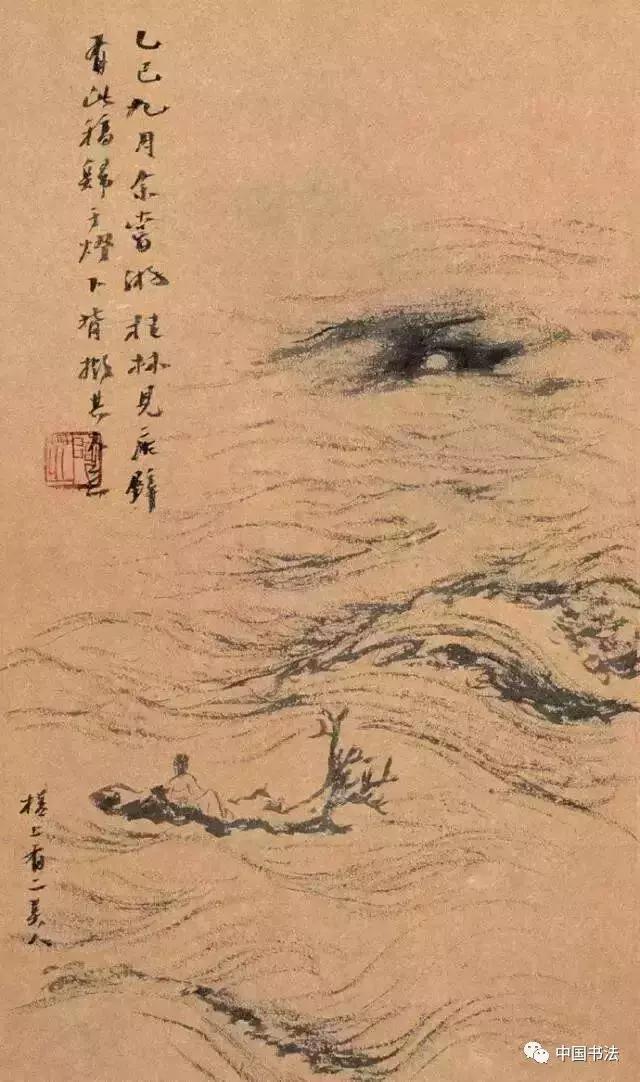 乙巳九月余嘗游桂林見廢壁
有此稿歸于燈下背擬其
楂上有二美人
中国书法